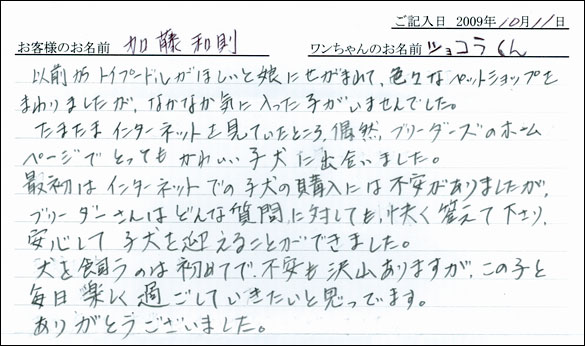 ご記入日 2009年10月11日
お客様のお名前 加藤和則 ワンちゃんのお名前 ショコラくん
以前からトイプードルがほしいと娘にせがまれて、色々なペットショップを
まわりましたが、なかなか気に入った子がいませんでした。
たまたまインターネットを見ていたところ、偶然、ブリーダーズのホーム
ページでとってもかわいい子犬に出会いました。
最初はインターネットでの子犬の購入には不安がありましたが、
ブリーダーさんはどんな質問に対しても、快く答えて下さり、
安心して子犬を迎えることができました。
犬を飼うのは初めてで、不安も沢山ありますが、この子と
毎日楽しく過ごしていきたいと思ってます。
ありがとうございました。